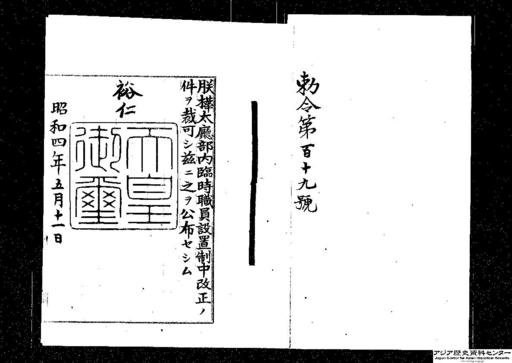 勅令第百十九號
朕樺太廳部内臨時職員設置制中改正ノ
件ヲ裁可シ茲ニ之ヲ公布セシム
裕仁
天皇
御璽
昭和四年五月十一日
アジア歴史資料センター
Japan Center for Asian Historical Records